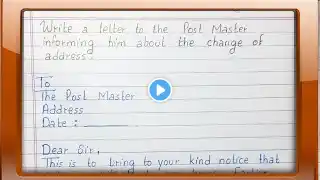 Write a letter to the Post Master
informing him about the change of
address.
To
The Post Master
Address
Date :
Dear Sir,
This is to bring to your kind notice that